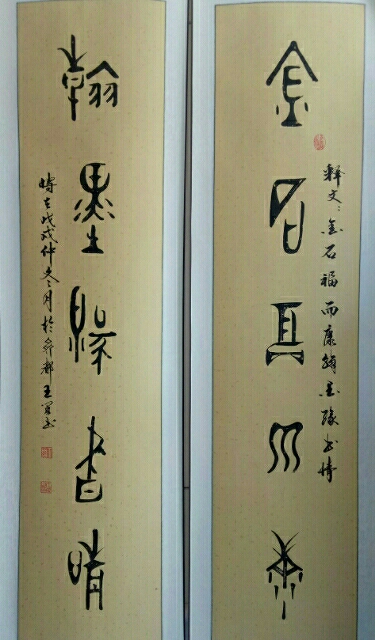 金石福而康
释文:金石福而康翰墨缘书情
翰墨缘书情
時在戊戌仲冬月於 都王 书